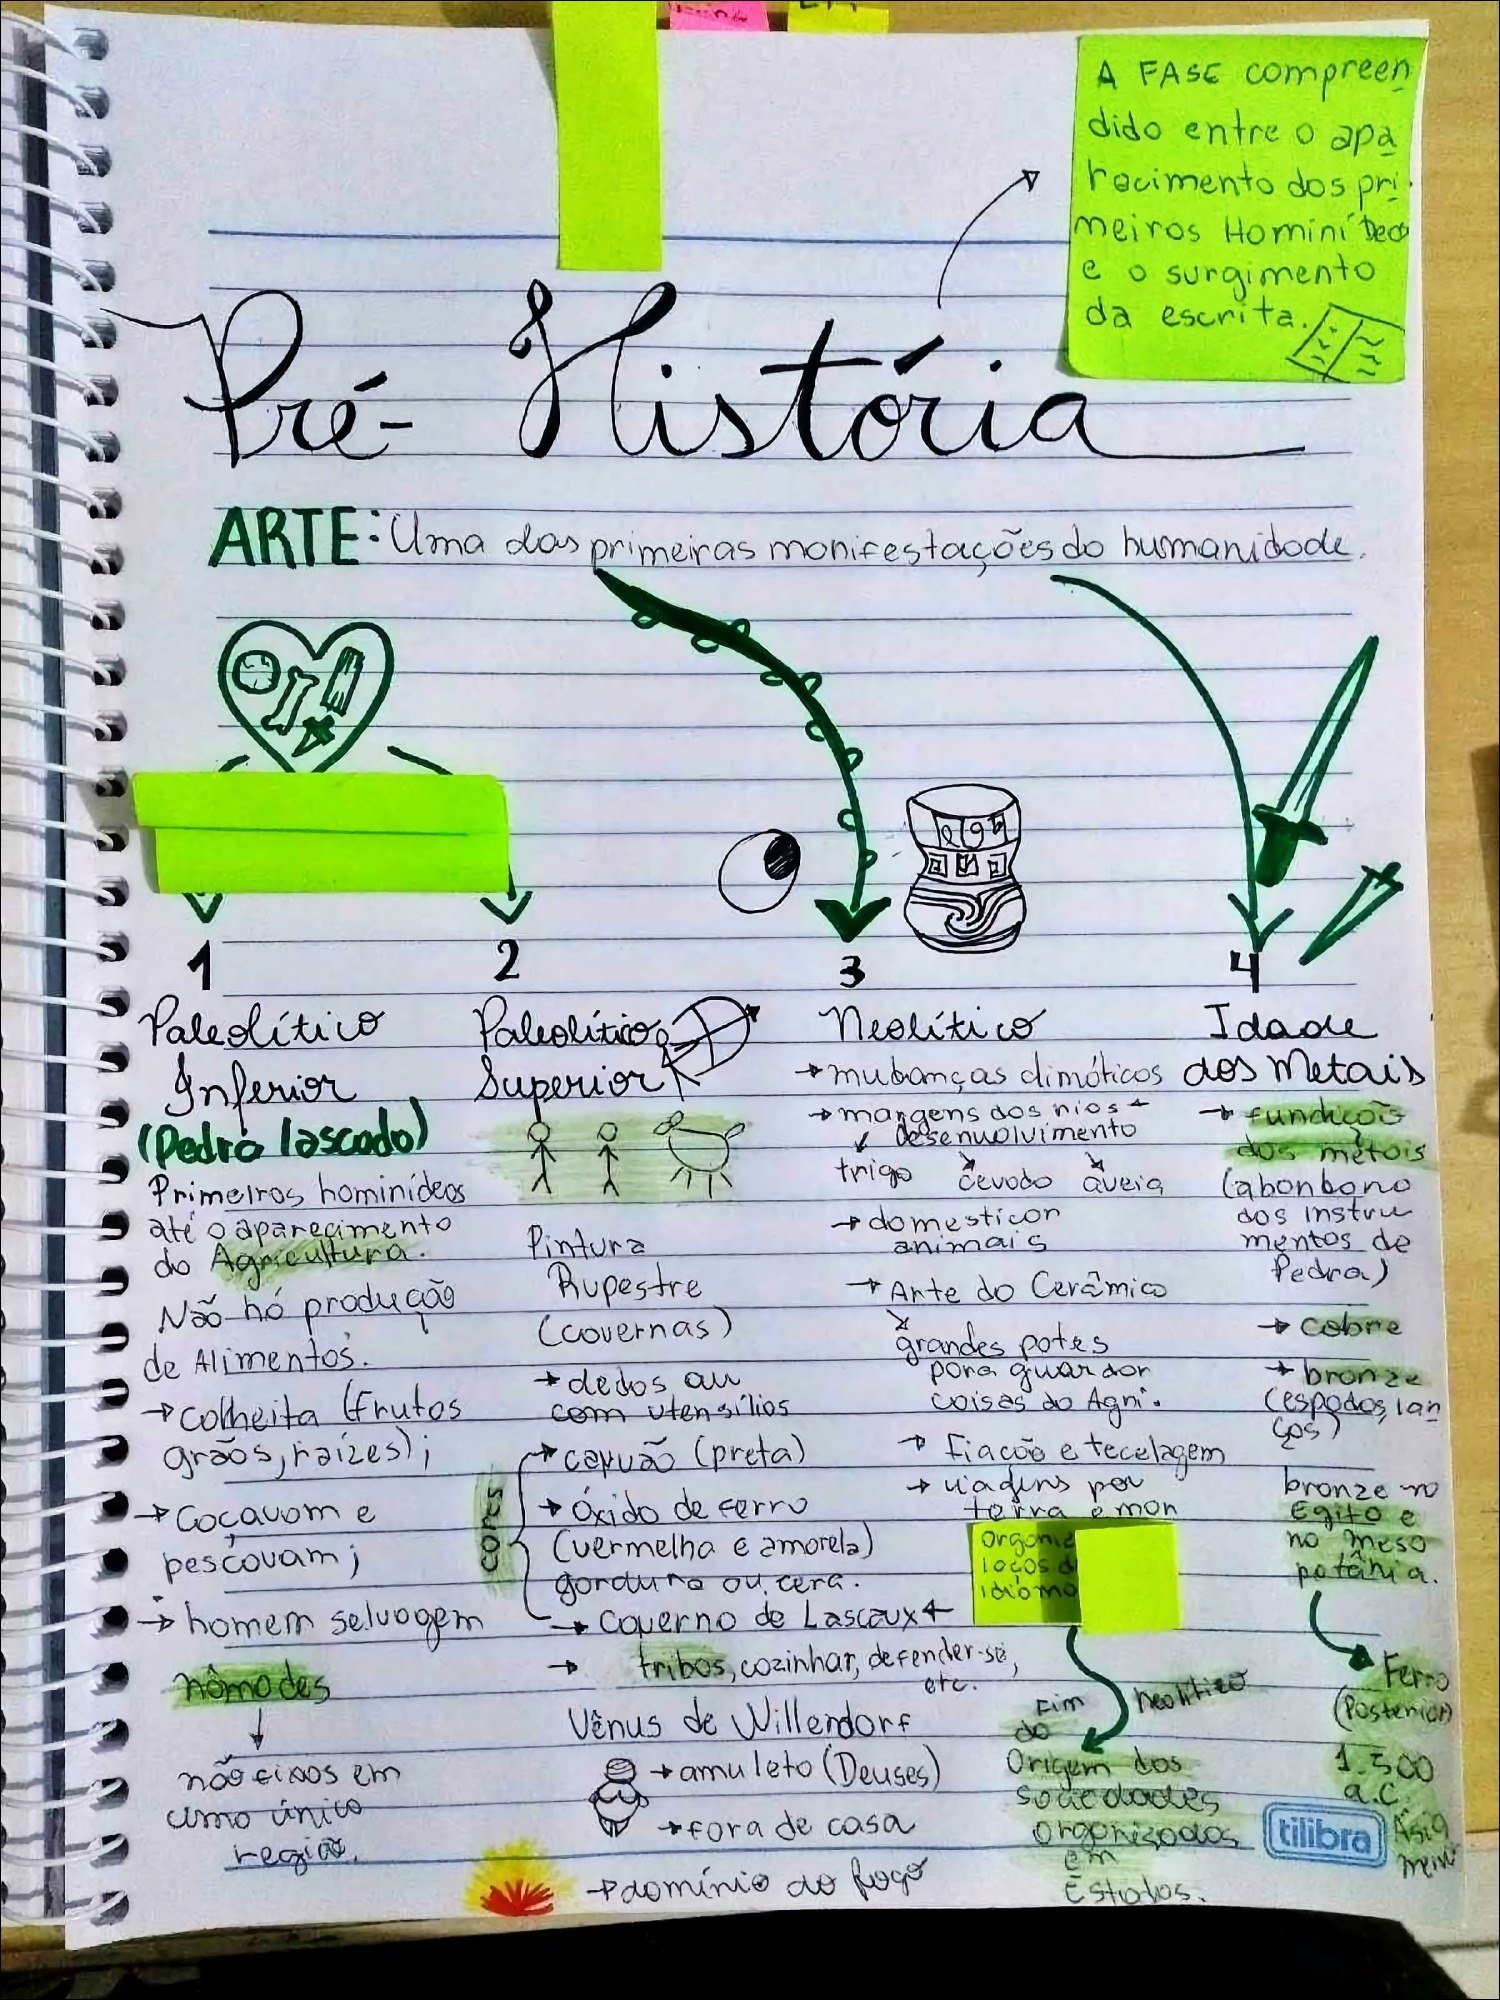 A FASE compreen
dido entre o apa
recimento dos pri
meiros Hominídeos
e o surgimento
da escrita.
Pré-História
ARTE: Uma das primeiras manifestações da humanidade.
1
Paleolítico
Inferior
(Pedra lascada)
Primeiros hominídeos
até o aparecimento
da Agricultura.
Não há produção
de Alimentos.
→ colheita (frutos
grãos, raízes);
→ Caçavam e
pescavam;
→ homem selvagem
nômades
não fixos em
uma única
região.
2
Paleolítico
Superior
Pintura
Rupestre
(cavernas)
→ dedos ou
com utensílios
cores
→ carvão (preta)
→ Óxido de ferro
(vermelha e amarela)
gordura ou cera.
→ Caverna de Lascaux
→ tribos, cozinhar, defender-se,
etc.
Vênus de Willendorf
→ amuleto (Deuses)
→ fora de casa
→ domínio do fogo
3
Neolítico
→ mudanças climáticas
→ margens dos rios
desenvolvimento
trigo cevada aveia
→ domesticar
animais
→ Arte da Cerâmica
grandes potes
para guardar
coisas da Agri.
→ Fiação e tecelagem
→ viagens por
terra e mar
idioma
Fim
do
neolítico
Origem das
sociedades
organizadas
em
Estados.
4
Idade
dos Metais
→ fundição
dos metais
(abandono
dos instru
mentos de
Pedra)
→ cobre
→ bronze
(espadas, lan
ças)
bronze no
Egito e
na meso
potâmia.
Ferro
(Posterior)
1.500
a.C.
Ásia
tilibra